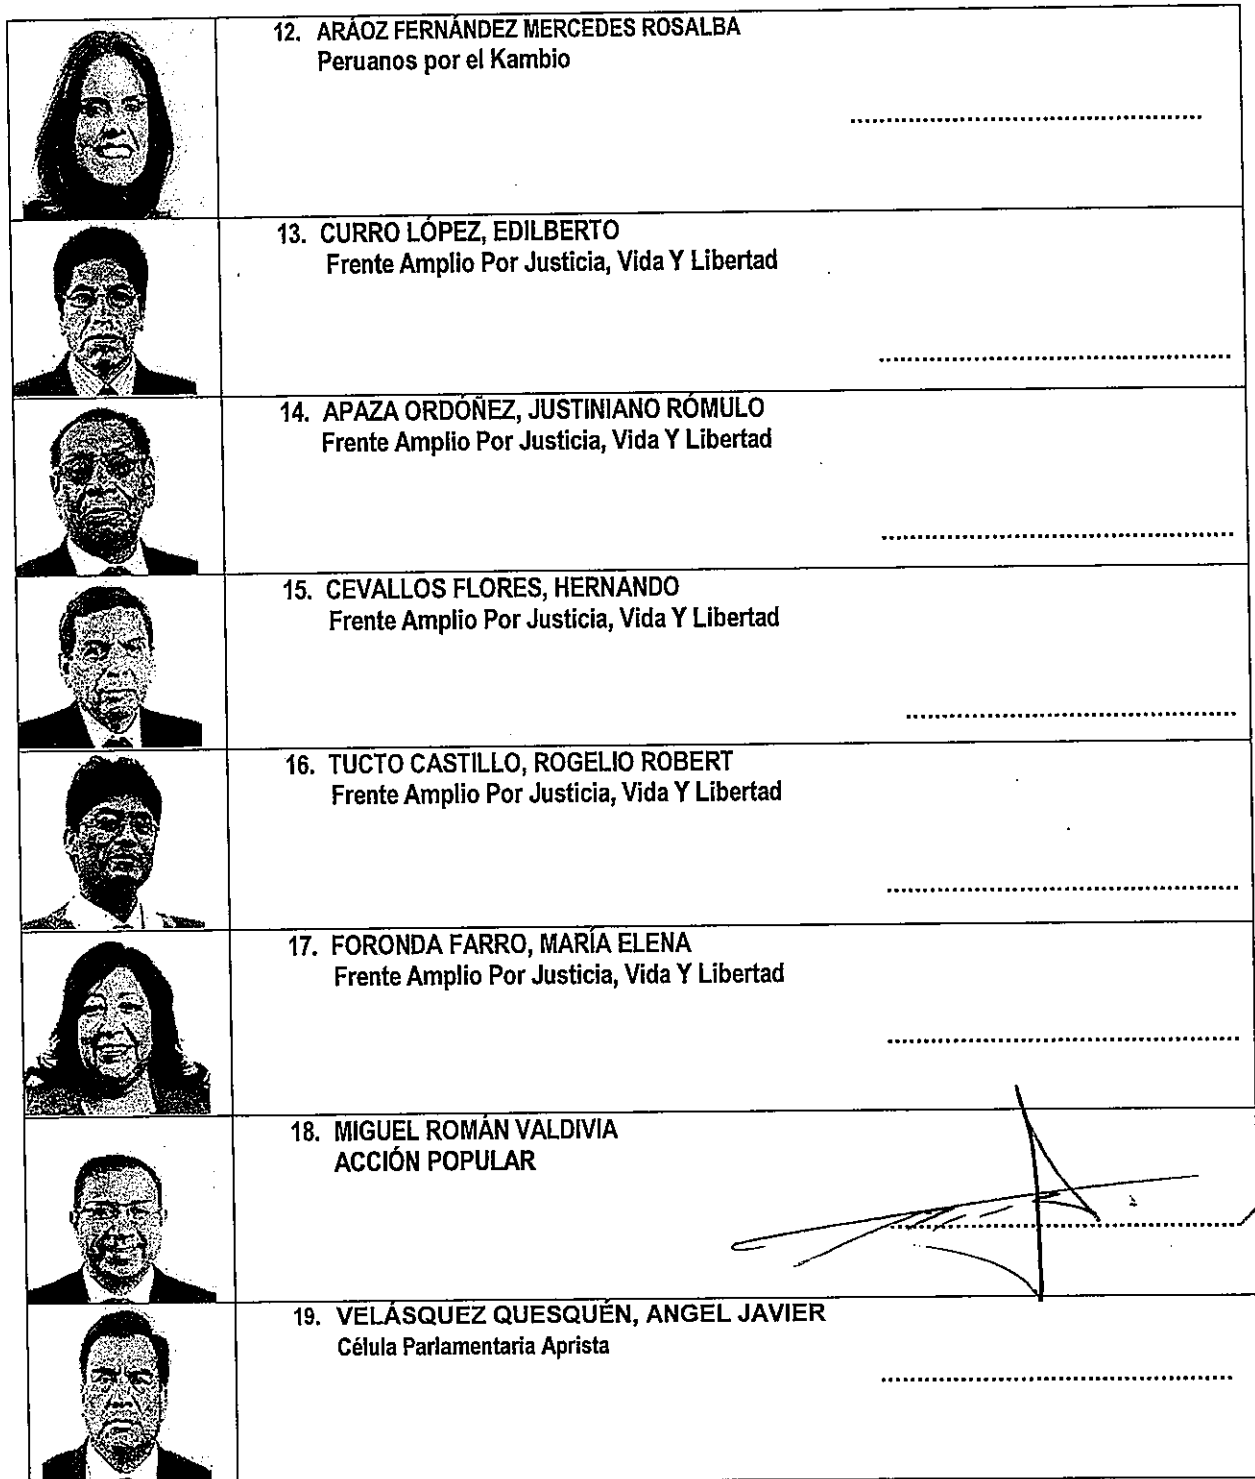 12. ARÁOZ FERNÁNDEZ MERCEDES ROSALBA
Peruanos por el Kambio
13. CURRO LÓPEZ, EDILBERTO
Frente Amplio Por Justicia, Vida Y Libertad
14. APAZA ORDÓÑEZ, JUSTINIANO RÓMULO
Frente Amplio Por Justicia, Vida Y Libertad
15. CEVALLOS FLORES, HERNANDO
Frente Amplio Por Justicia, Vida Y Libertad
16. TUCTO CASTILLO, ROGELIO ROBERT
Frente Amplio Por Justicia, Vida Y Libertad
17. FORONDA FARRO, MARÍA ELENA
Frente Amplio Por Justicia, Vida Y Libertad
18. MIGUEL ROMÁN VALDIVIA
ACCIÓN POPULAR
19. VELÁSQUEZ QUESQUÉN, ANGEL JAVIER
Célula Parlamentaria Aprista